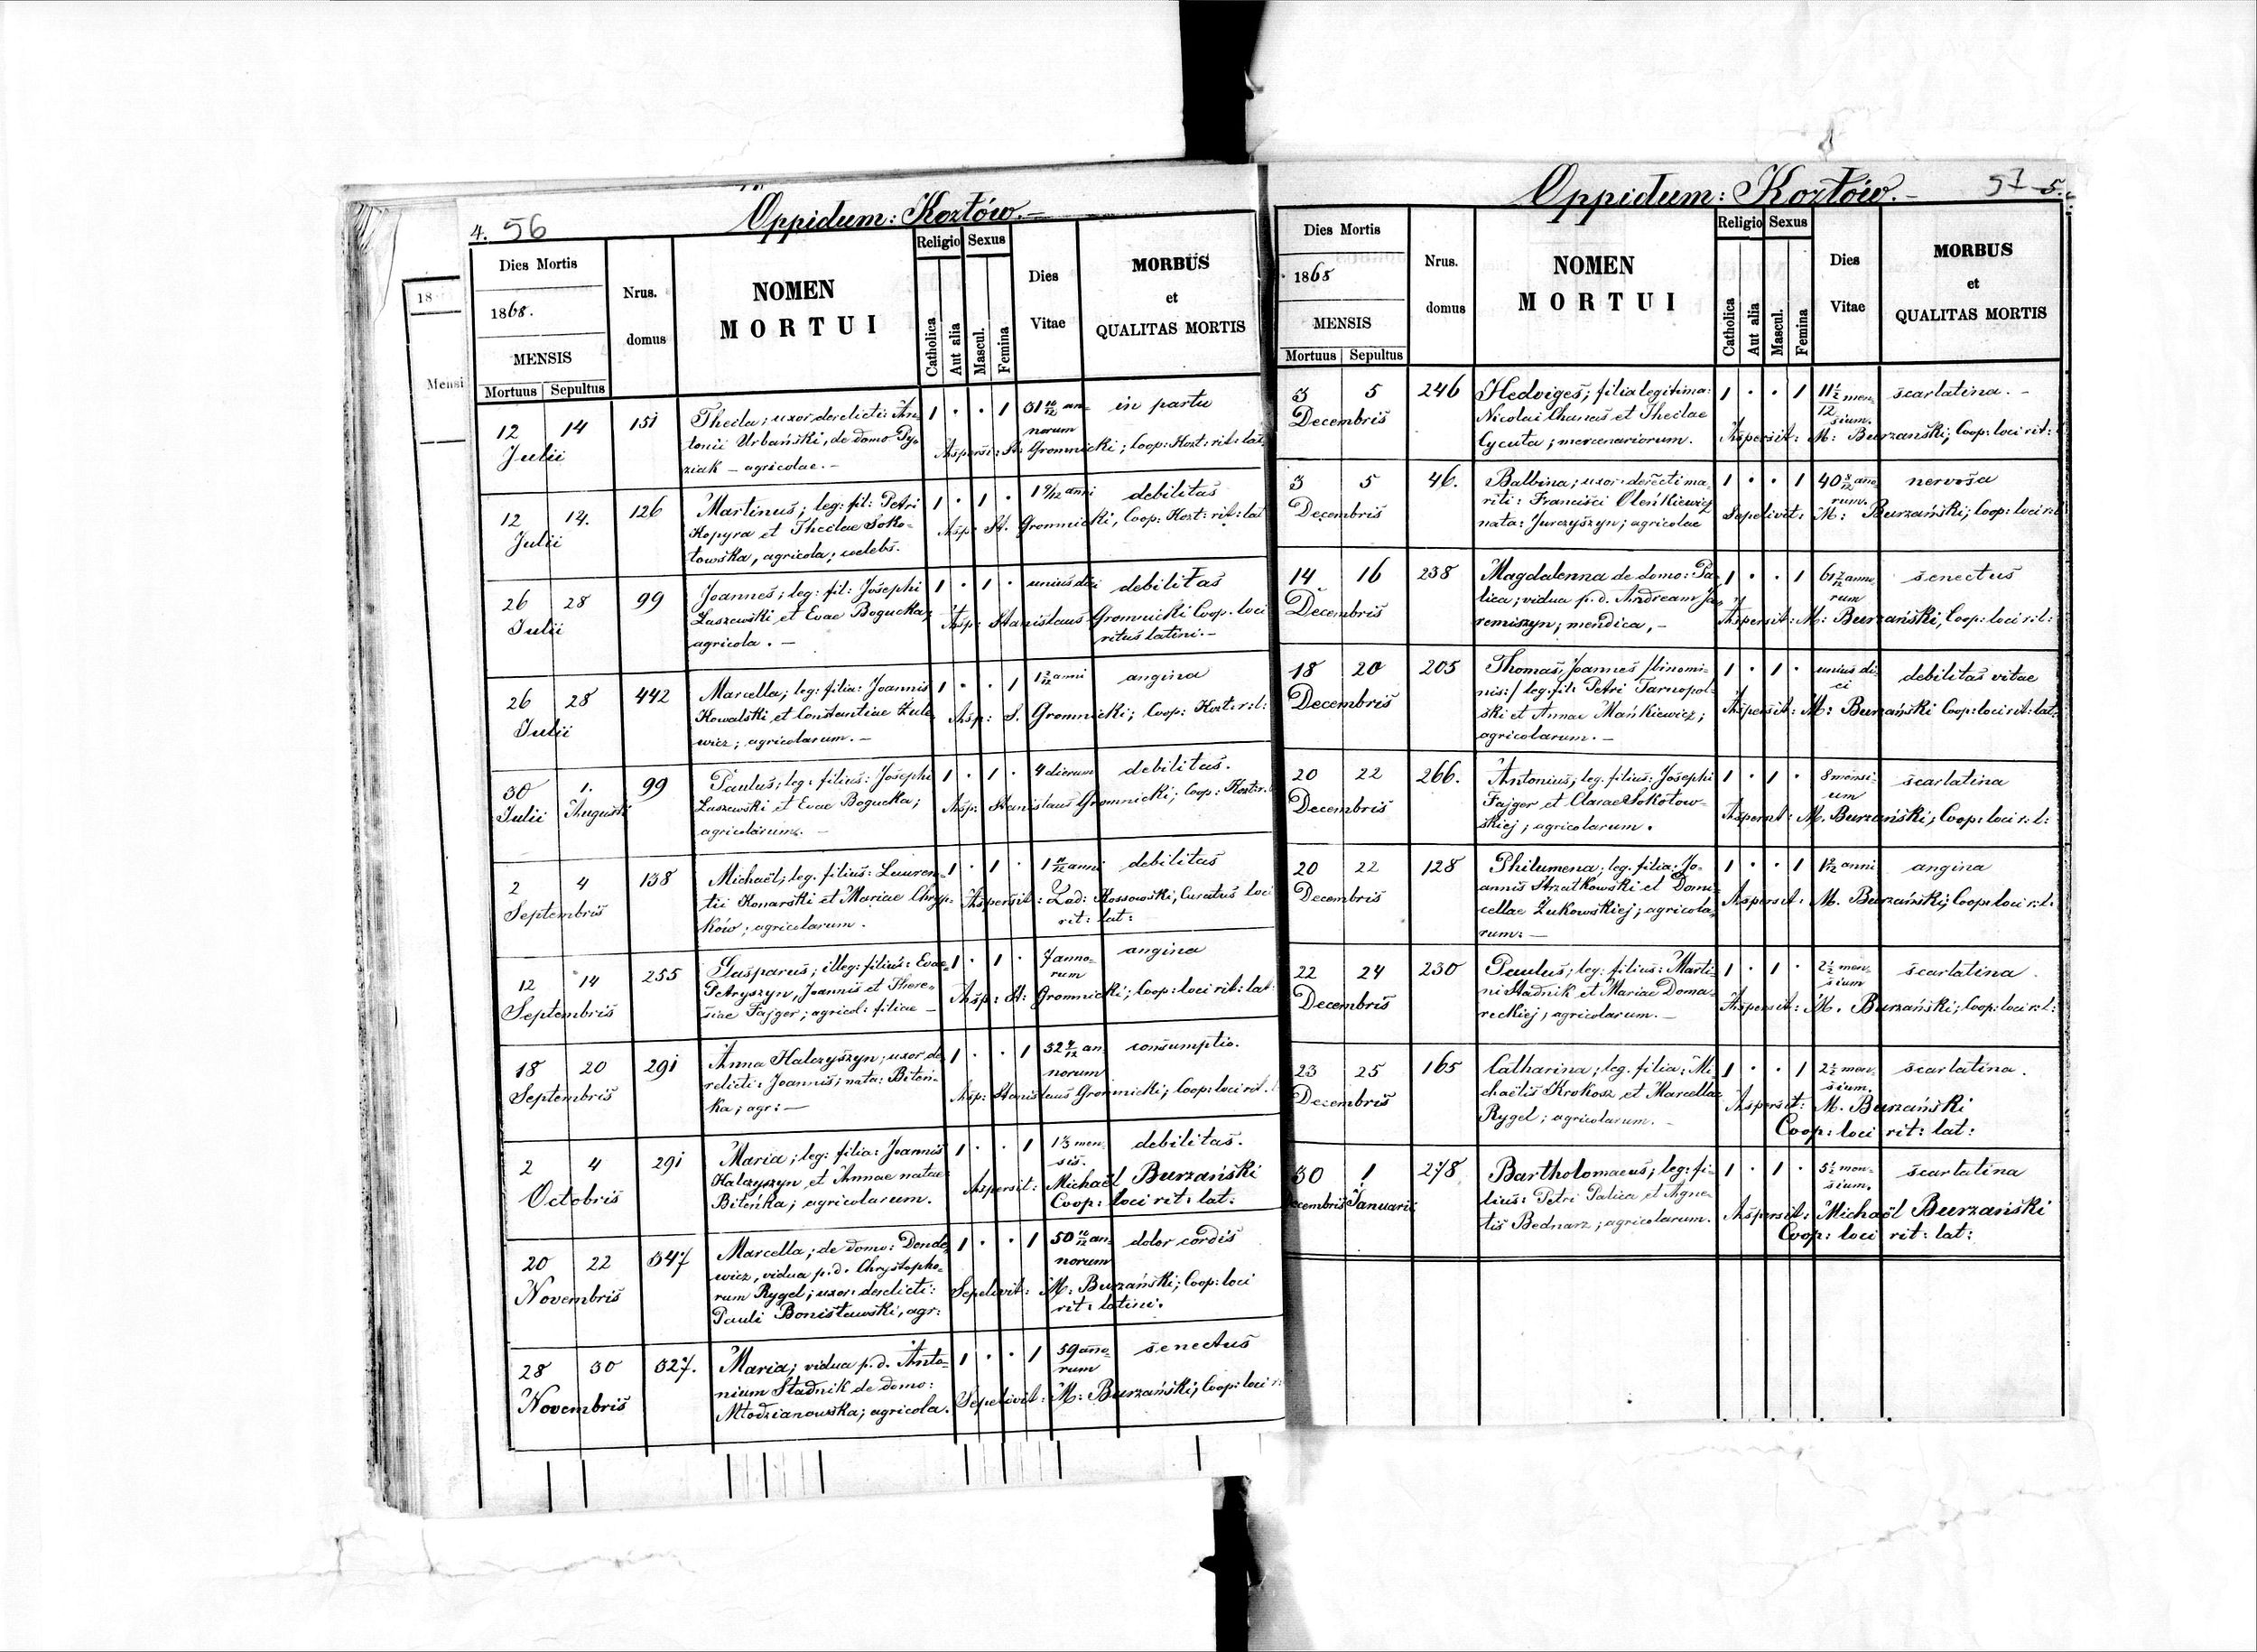 4. 56
Oppidum: Kozłów.-
Dies Mortis
1868.
MENSIS
Mortuus Sepultus
Nrus.
domus
NOMEN
MORTUI
Religio
Catholica
Aut alia
Sexus
Mascul.
Femina
Dies
Vitae
MORBUS
et
QUALITAS MORTIS
18
Mensi
12 14 151 Thecla; uxor derelicti: An- 1 . . 1 31 10/12 an- in partu
Julii tonii Urbański, de domo Py- norum
ziak - agricolae. - Aspersi: St: Gromnicki; Coop: Kozt: rit: lat
12 14. 126 Martinus; leg: fil: Petri 1 . 1 . 1 9/12 anni debilitas
Julii Kopyra et Theclae Soko- Asp: St. Gromnicki, Coop: Kozt: rit: lat
łowska, agricola; coelebs.
26 28 99 Joannes; leg: fil: Josephi 1 . 1 . unius diei debilitas
Julii Łaszewski et Evae Bogucka; Asp: Stanislaus Gromnicki Coop. loci
agricola. - ritus latini. -
26 28 442 Marcella; leg: filia: Joannis 1 . . 1 anni angina
Julii Kowalski et Constantiae Żule- Asp: S. Gromnicki; Coop: Kozt: r: l:
wicz; agricolarum. -
30 1. 99 Paulus; leg: filius: Josephi 1 . 1 . 4 dierum debilitas.
Julii Augusti Łaszewski et Evae Bogucka; Asp: Stanislaus Gromnicki; Coop: Kozt: r.
agricolarum. -
2 4 138 Michaël; leg. filius: Lauren- 1 . 1 . anni debilitas
Septembris tii Konarski et Mariae Chryp- Aspersit: Lad: Kossowski, Curatus loci
ków; agricolarum. rit: lat:
12 14 255 Gasparus; illeg: filius: Evae 1 . 1 . 7 anno- angina
Septembris Petryszyn, Joannis et There- rum
siae Fajger; agricol: filiae - Asp: St: Gromnicki; Coop: loci rit: lat
18 20 291 Anna Halczyszyn; uxor de- 1 . . 1 an- consumptio.
Septembris relicti: Joannis; nata: Biteń- norum
ka; agr: - Asp: Stanislaus Gromnicki; Coop: loci rit.
2 4 291 Maria; leg: filia: Joannis 1 . . 1 men- debilitas.
Octobris Halczyszyn et Annae natae: sis.
Biteńka; agricolarum. Aspersit: Michaël Burzański
Coop: loci rit: lat:
20 22 347 Marcella; de domo: Dende- 1 . . 1 50 10/12 an- dolor cordis
Novembris wicz, vidua p. d. Chrystopho- norum
rum Rygel; uxor: derelicti: Sepelivit: M: Burzański; Coop: loci
Pauli Bonisławski, agr: rit: latini.
28 30 327. Maria; vidua p. d. Anto- 1 . . 1 59 ano- senectus
Novembris nium Stadnik de domo: rum
Młodzianowska; agricola. Sepelivit: M: Burzański; Coop: loci r:
Oppidum: Kozłów. - 57 5.
Dies Mortis
1868
MENSIS
Mortuus Sepultus
Nrus.
domus
NOMEN
MORTUI
Religio
Catholica
Aut alia
Sexus
Mascul.
Femina
Dies
Vitae
MORBUS
et
QUALITAS MORTIS
3 5 246 Hedviges; filia legitima: 1 . . 1 men- scarlatina. -
Decembris Nicolai et Theclae sium.
Cycuta; mercenariorum. Aspersit: M: Burzański; Coop: loci rit:
3 5 46. Balbina; uxor: derecti ma- 1 . . 1 40 ano- nervosa
Decembris riti: Francisci Oleńkiewicz rum.
nata: Jurczyszyn; agricolae Sepelivit: M: Burzański; Coop: loci r: l:
14 16 238 Magdalenna de domo: Pa- 1 . . 1 anno- senectus
Decembris lica; vidua p. d. Andream Ja- rum
remiszyn; mendica, - Aspersit: M: Burzański, Coop: loci r: l:
18 20 205 Thomas, Joannes /:binomi- 1 . 1 . unius di- debilitas vitae
Decembris nis:/ leg. fil: Petri Tarnopol- ei
ski et Annae Mańkiewicz; Aspersit: M: Burzański Coop: loci rit: lat:
agricolarum. -
20 22 266. Antonius; leg. filius: Josephi 1 . 1 . 8 mensi- scarlatina
Decembris Fajger et Clarae Sokołow- um
skiej; agricolarum. Aspersit: M. Burzański; Coop: loci r: l:
20 22 128 Philumena; leg. filia: Jo- 1 . . 1 anni angina
Decembris annis Strzałkowski et Domi-
cellae Żukowskiej; agricola- Aspersit: M. Burzański; Coop: loci r: l:
rum: -
22 24 230 Paulus; leg: filius: Marti- 1 . 1 . 2 1/2 men- scarlatina.
Decembris ni Stadnik et Mariae Doma- sium
reckiej; agricolarum. - Aspersit: M. Burzański; Coop: loci r: l:
23 25 165 Catharina; leg. filia: Mi- 1 . . 1 2 1/2 men- scarlatina.
Decembris chaëlis Krokosz et Marcellae sium.
Rygel; agricolarum. - Aspersit: M. Burzański
Coop: loci rit: lat:
30 1 278 Bartholomaeus; leg: fi- 1 . 1 . 5 1/2 men- scarlatina
Decembris Januarii lius: Petri Palica et Agne- sium.
tis Bednarz; agricolarum. Aspersit: Michaël Burzański
Coop: loci rit: lat: